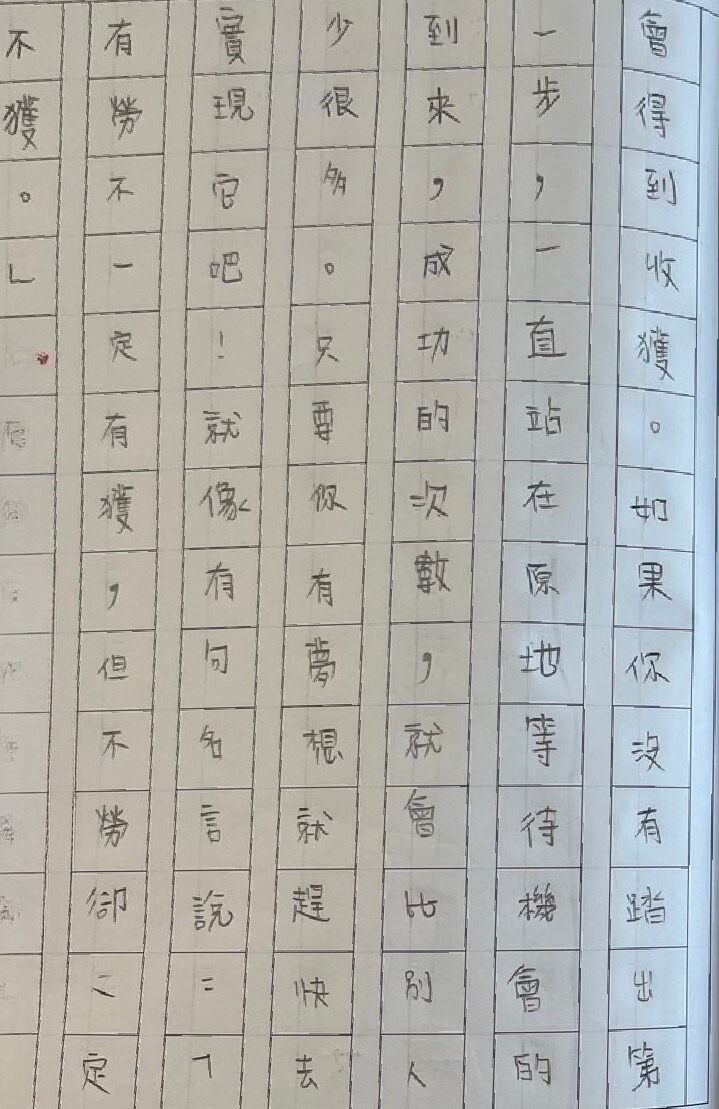 會得到收獲。如果你沒有踏出第
一步，一直站在原地等待機會的
到來，成功的次數，就會比別人
少很多。只要你有夢想就趕快去
實現它吧！就像有句名言說：「
有勞不一定有獲，但不勞卻一定
不獲。」